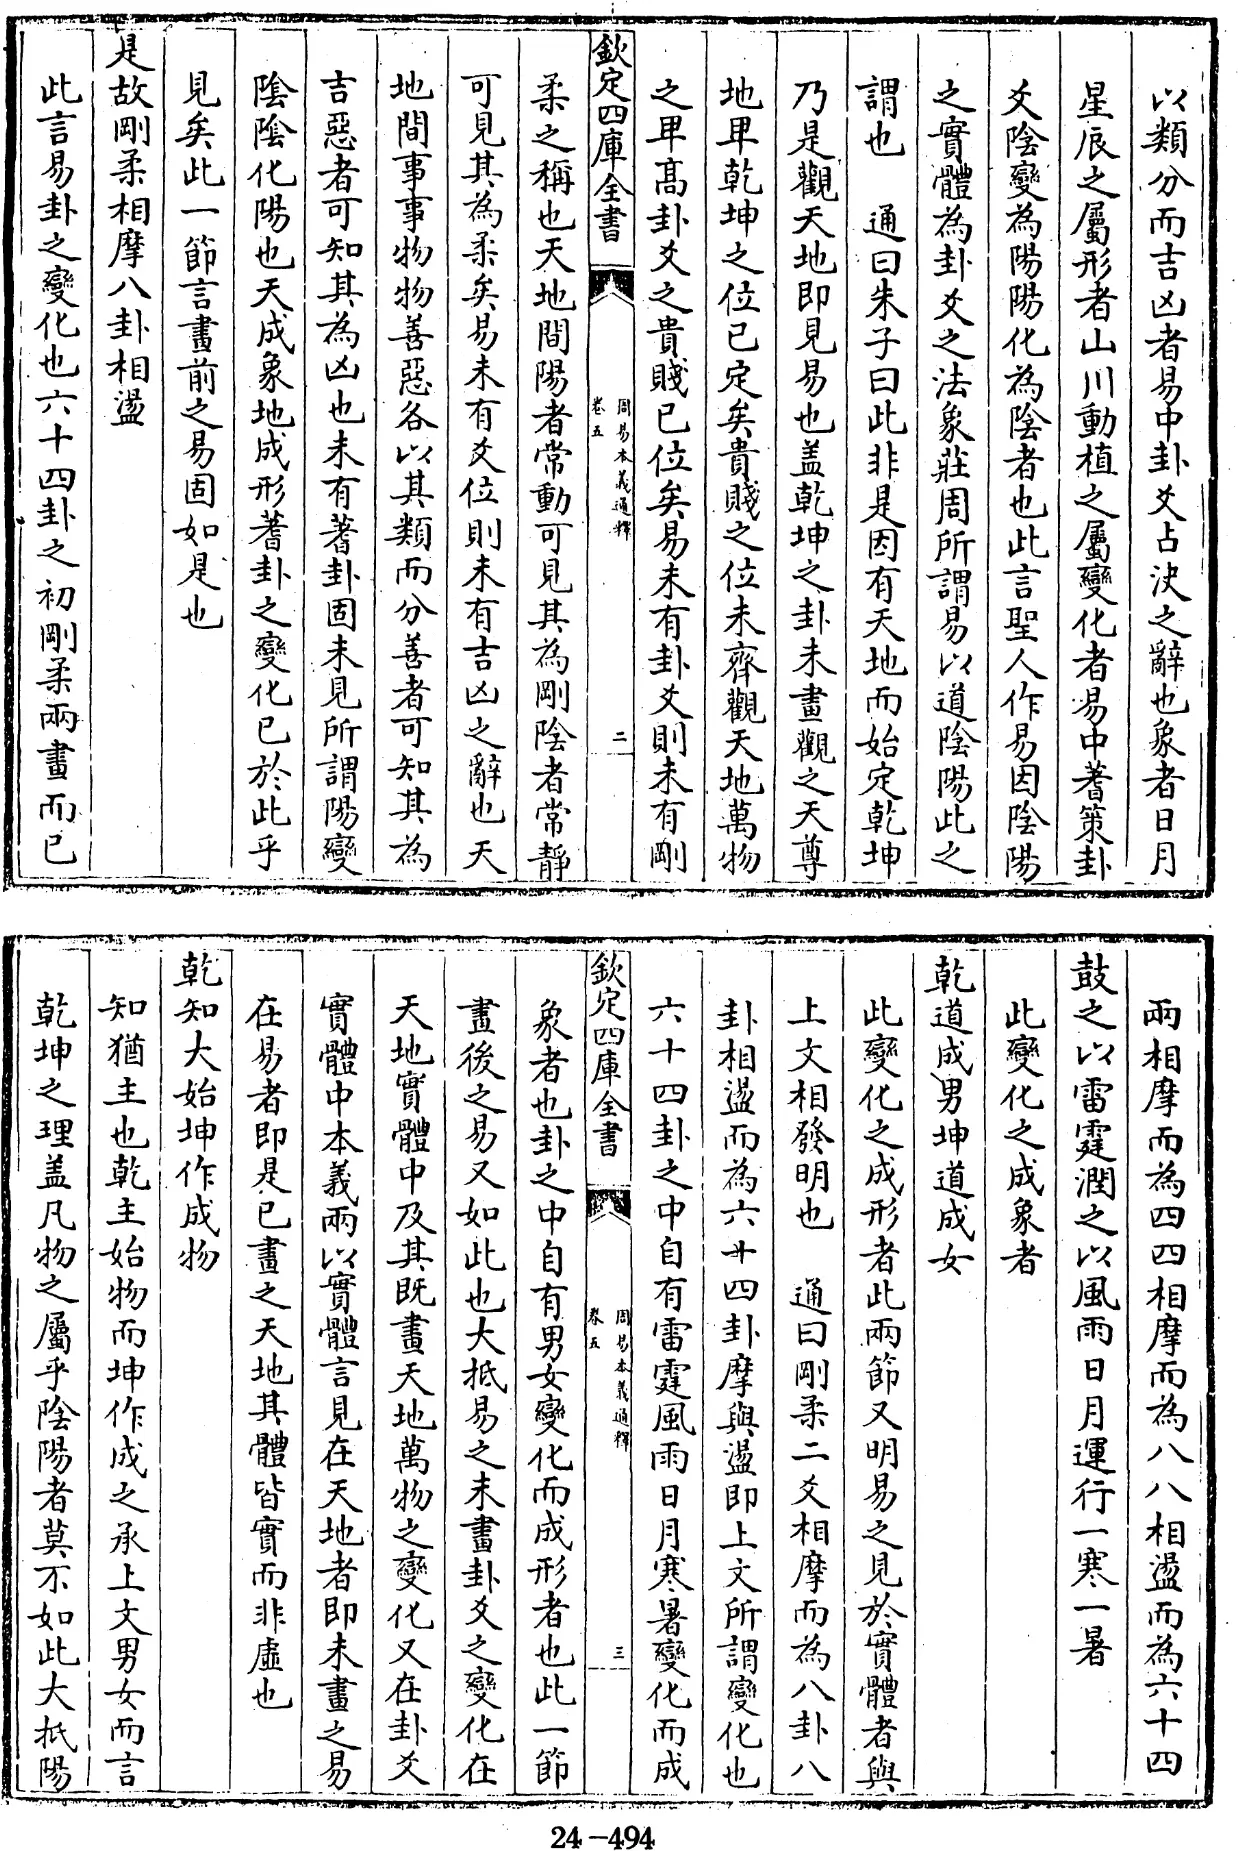 以類分而吉凶者易中卦爻占決之辭也象者日月
星辰之屬形者山川動植之屬變化者易中蓍策卦
爻陰變為陽陽化為陰者也此言聖人作易因陰陽
之實體為卦爻之法象莊周所謂易以道陰陽此之
謂也　通曰朱子曰此非是因有天地而始定乾坤
乃是觀天地即見易也盖乾坤之卦未畫觀之天尊
地卑乾坤之位已定矣貴賤之位未齊觀天地萬物
之卑髙卦爻之貴賤已位矣易未有卦爻則未有剛
欽定四庫全書
周易本義通釋
卷五
二
柔之稱也天地間陽者常動可見其為剛陰者常靜
可見其為柔矣易未有爻位則未有吉凶之辭也天
地間事事物物善惡各以其類而分善者可知其為
吉惡者可知其為凶也未有蓍卦固未見所謂陽變
陰陰化陽也天成象地成形蓍卦之變化已於此乎
見矣此一節言畫前之易固如是也
是故剛柔相摩八卦相盪
此言易卦之變化也六十四卦之初剛柔兩畫而已
兩相摩而為四四相摩而為八八相盪而為六十四
鼓之以雷霆潤之以風雨日月運行一寒一暑
此變化之成象者
乾道成男坤道成女
此變化之成形者此兩節又明易之見於實體者與
上文相發明也　通曰剛柔二爻相摩而為八卦八
卦相盪而為六十四卦摩與盪即上文所謂變化也
六十四卦之中自有雷霆風雨日月寒暑變化而成
欽定四庫全書
周易本義通釋
卷五
三
象者也卦之中自有男女變化而成形者也此一節
畫後之易又如此也大抵易之未畫卦爻之變化在
天地實體中及其既畫天地萬物之變化又在卦爻
實體中本義兩以實體言見在天地者即未畫之易
在易者即是已畫之天地其體皆實而非虛也
乾知大始坤作成物
知猶主也乾主始物而坤作成之承上文男女而言
乾坤之理盖凡物之屬乎陰陽者莫不如此大抵陽
24-494